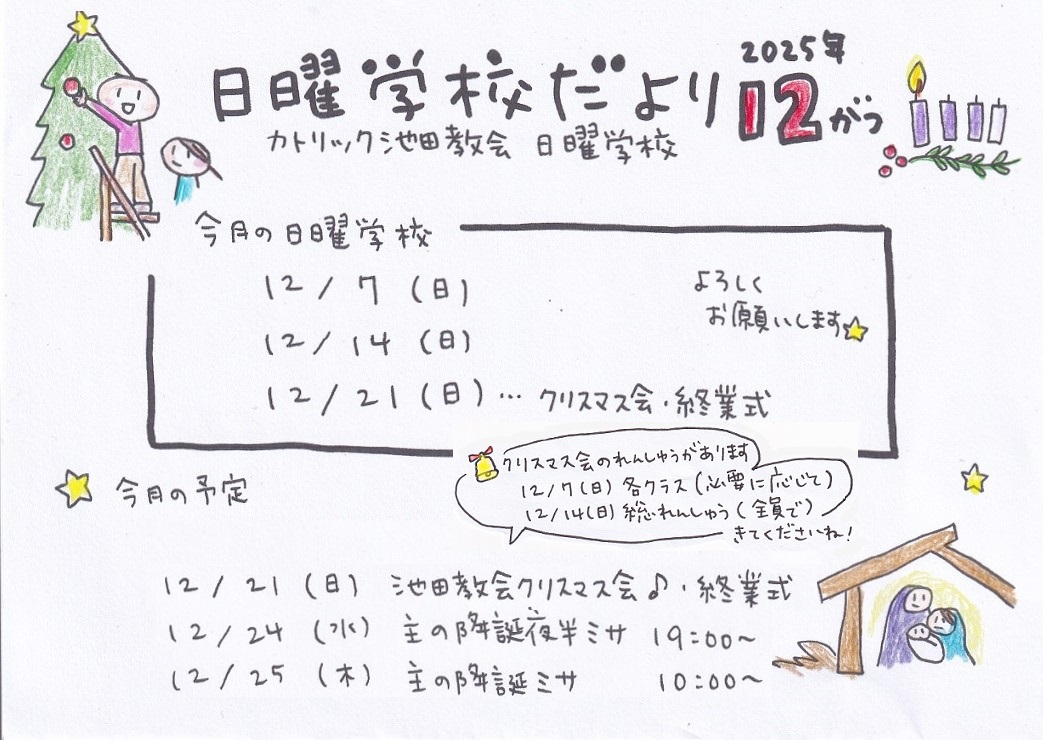 2025年
日曜学校だより 12がつ
カトリック池田教会 日曜学校
今月の日曜学校
12/7 (日)
よろしく
お願いします
12/14 (日)
12/21 (日)… クリスマス会・終業式
クリスマス会のれんしゅうがあります
12/7(日) 各クラス(必要に応じて)
12/14(日) 総れんしゅう(全員で)
きてくださいね!
今月の予定
12/21 (日) 池田教会クリスマス会♪・終業式
12/24 (水) 主の降誕夜半ミサ 19:00~
12/25 (木) 主の降誕ミサ 10:00~